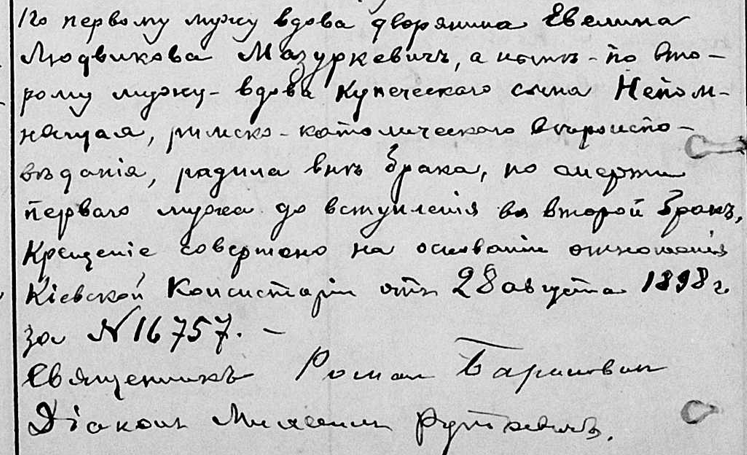 По первому мужу вдова дворянина Евелина
Людвикова Мазуркевичъ, а нынѣ - по вто-
рому мужу - вдова Купеческаго сына Непом-
нящая, римско-католическаго вѣроиспо-
вѣданія, родила внѣ брака, по смерти
перваго мужа до вступленія во второй бракъ,
Крещеніе совершено на основаніи отношенія
Кіевской Консисторіи отъ 28 августа 1898 г.
за N 16757. -
Священникъ Роман
Діаконъ